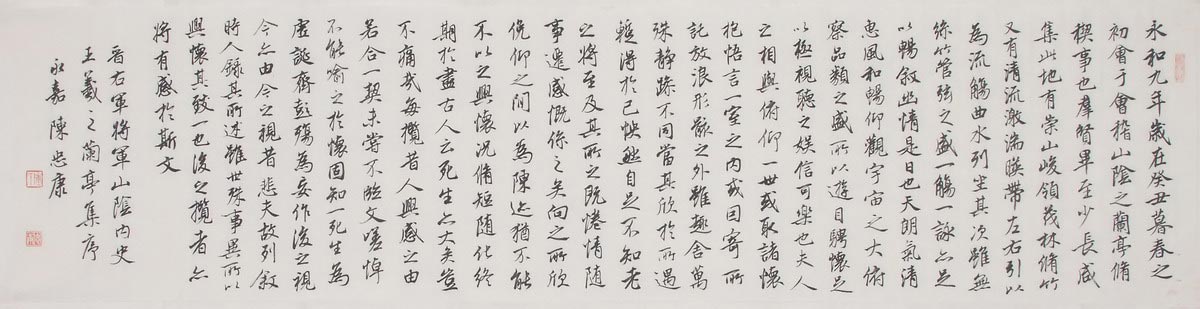 永和九年歲在癸丑暮春之
初會于會稽山陰之蘭亭脩
禊事也羣賢畢至少長咸
集此地有崇山峻領茂林脩竹
又有清流激湍暎帶左右引以
為流觴曲水列坐其次雖無
絲竹管弦之盛一觴一詠亦足
以暢敘幽情是日也天朗氣清
惠風和暢仰觀宇宙之大俯
察品類之盛所以遊目騁懷足
以極視聽之娛信可樂也夫人
之相與俯仰一世或取諸懷
抱悟言一室之內或因寄所
託放浪形骸之外雖趣舍萬
殊靜躁不同當其欣於所遇
蹔得於己怏然自足不知老
之將至及其所之既惓情隨
事遷感慨係之矣向之所欣
俛仰之間以為陳迹猶不能
不以之興懷況脩短隨化終
期於盡古人云死生亦大矣豈
不痛哉每攬昔人興感之由
若合一契未嘗不臨文嗟悼
不能喻之於懷固知一死生為
虛誕齊彭殤為妄作後之視
今亦由今之視昔悲夫故列敘
時人錄其所述雖世殊事異所以
興懷其致一也後之攬者亦
將有感於斯文
晉右軍將軍山陰內史
王羲之蘭亭集序
永嘉陳忠康